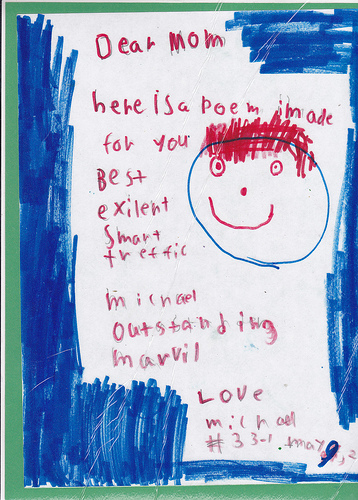 Dear Mom
here is a poem i made
for you
Best
exilent
smart
treffic
michael
outstanding
marvil
Love
michael
# 33-1 may 9,2